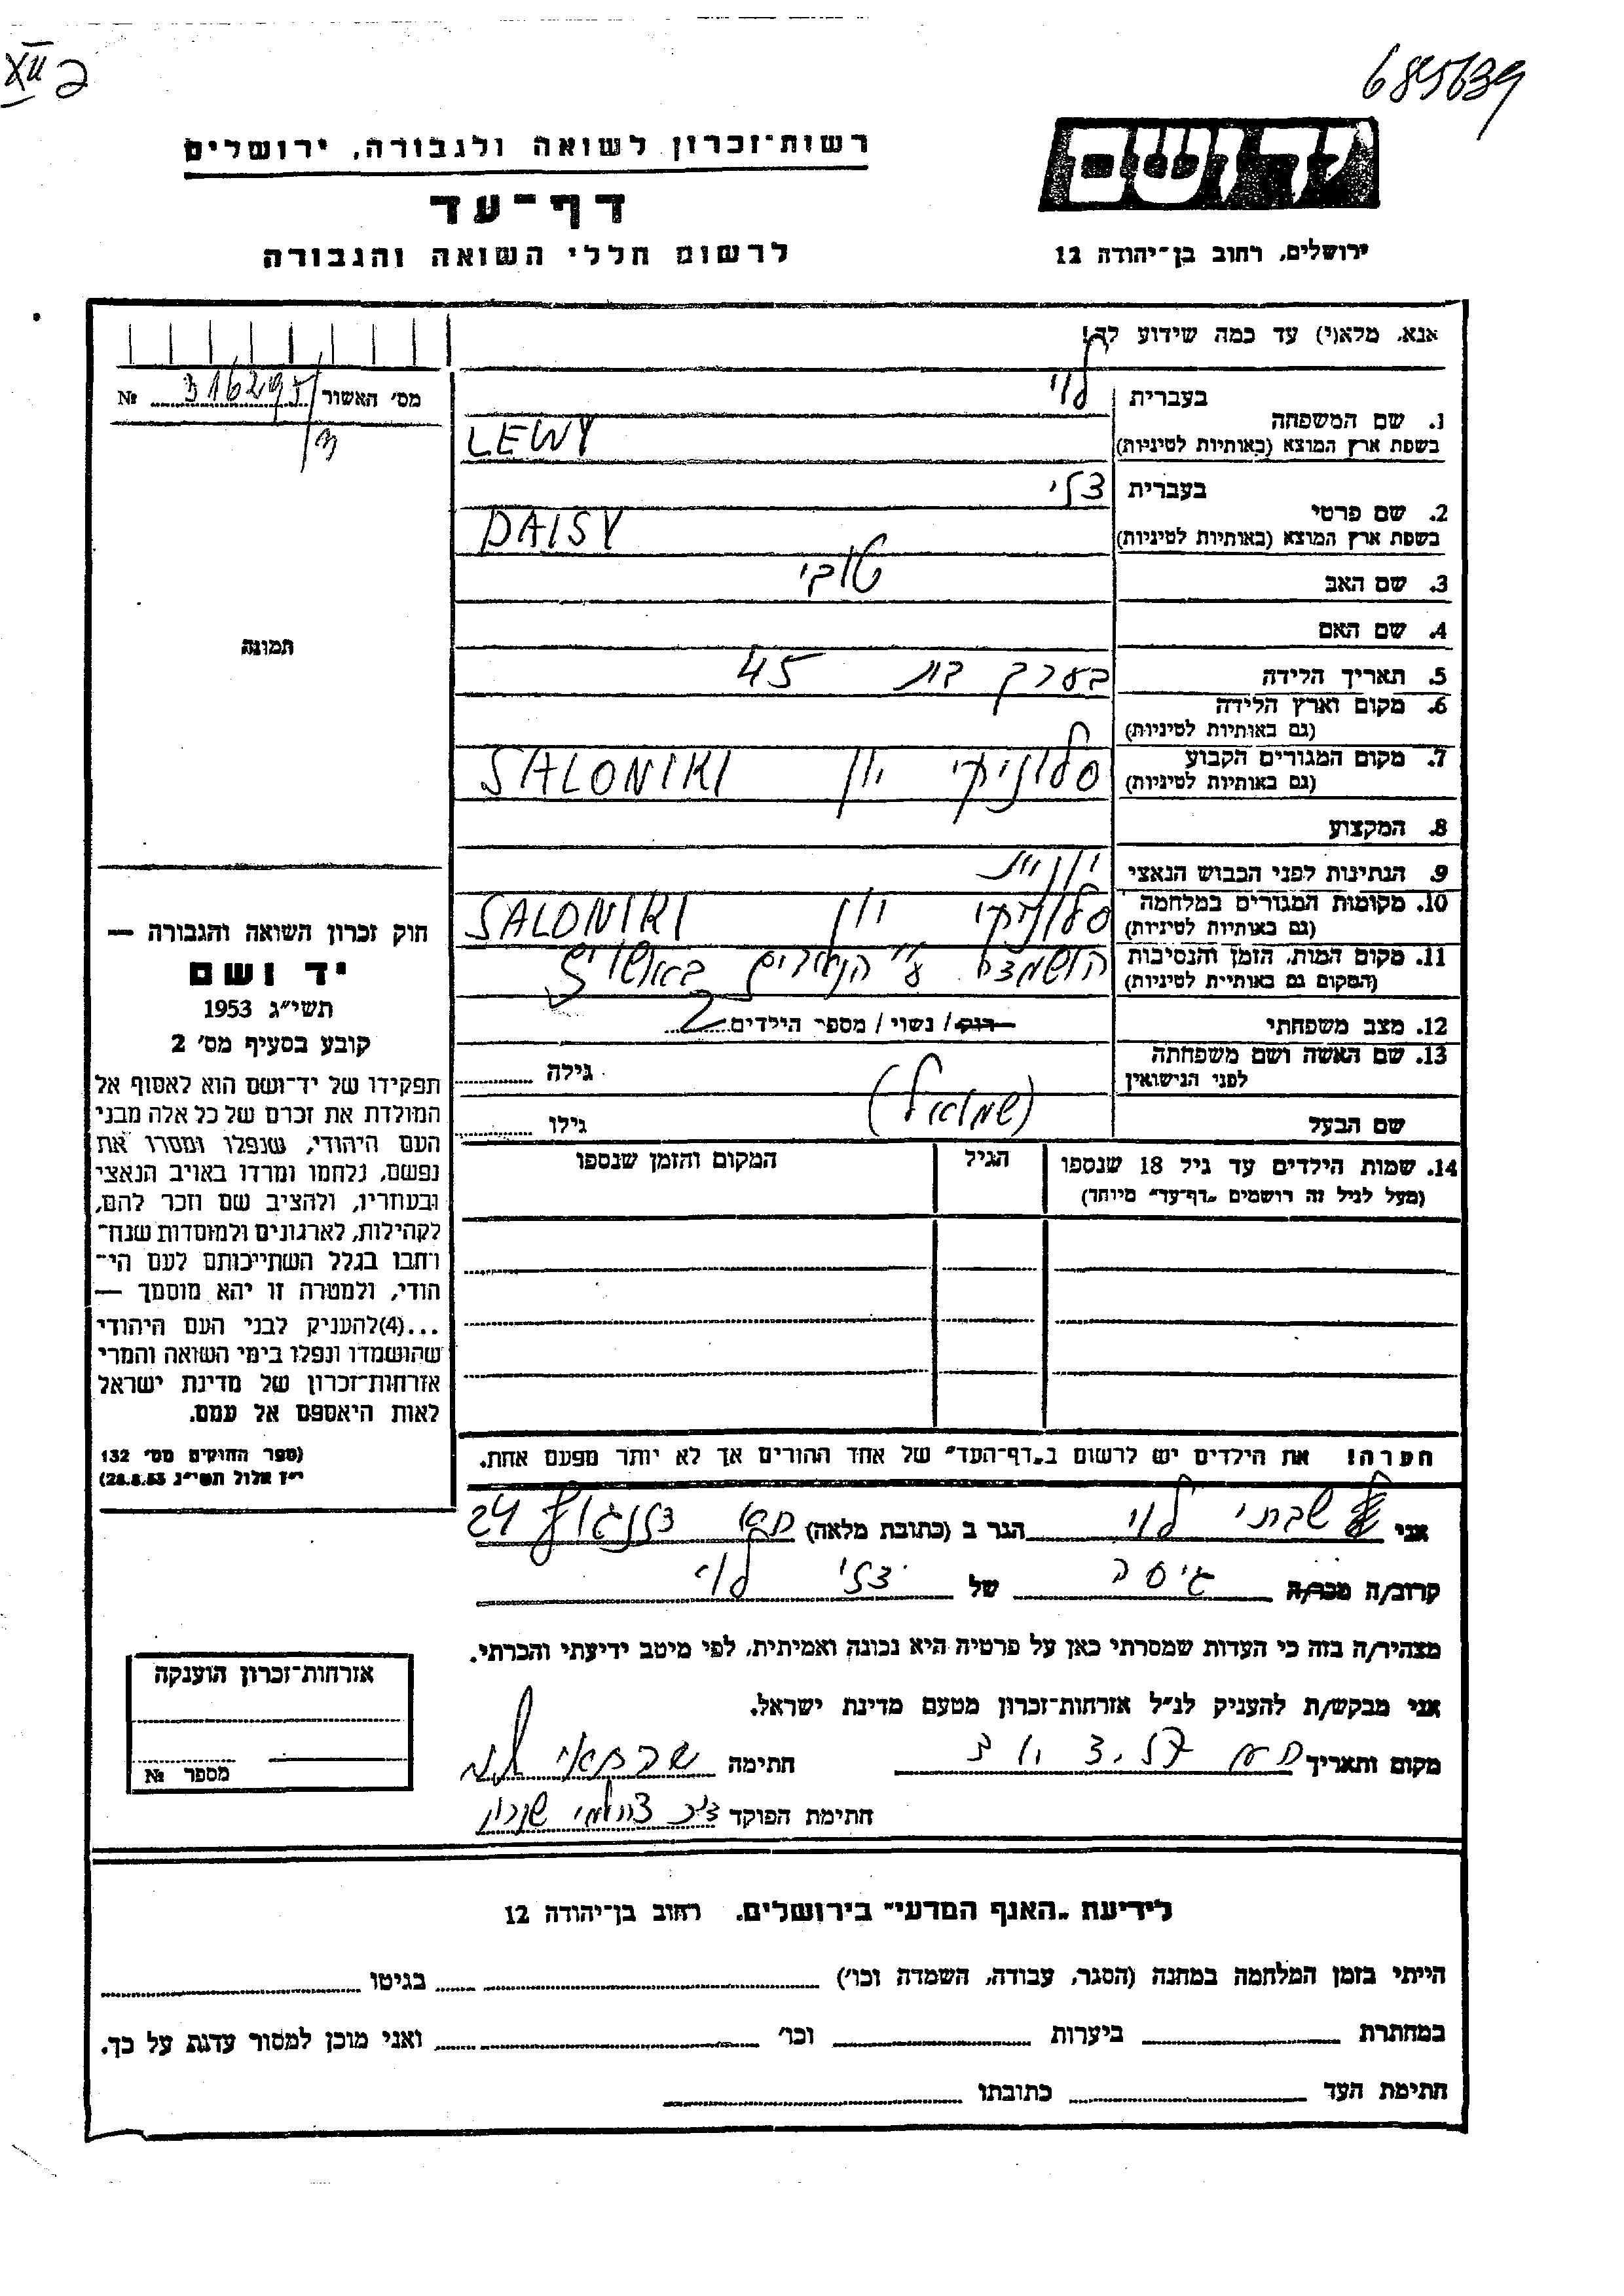 XII כ
685639
רשות־זכרון לשואה ולגבורה, ירושלים
דף־עד
לרשום חללי השואה והגבורה
יד ושם
ירושלים, רחוב בן־יהודה 12
אנא, מלא(י) עד כמה שידוע לך!
מס׳ האשור 316295 №
1. שם המשפחה
בעברית לוי
בשפת ארץ המוצא (באותיות לטיניות) LEWY
2. שם פרטי
בעברית
בשפת ארץ המוצא (באותיות לטיניות) DAISY
3. שם האב טובי
4. שם האם
תמונה
5. תאריך הלידה בערך בת 45
6. מקום וארץ הלידה
(גם באותיות לטיניות)
7. מקום המגורים הקבוע סלוניקי יון SALONIKI
(גם באותיות לטיניות)
8. המקצוע
9. הנתינות לפני הכבוש הנאצי יונית
10. מקומות המגורים במלחמה סלוניקי יון SALONIKI
(גם באותיות לטיניות)
11. מקום המות, הזמן והנסיבות הושמדה ע״י הנאצים באושויץ
(המקום גם באותיית לטיניות)
12. מצב משפחתי רווק / נשוי / מספר הילדים 2
13. שם האשה ושם משפחתה
לפני הנישואין גילה
שם הבעל (שמואל) גילו
14. שמות הילדים עד גיל 18 שנספו
(מעל לגיל זה רושמים „דף־עד״ מיוחד)
הגיל
המקום והזמן שנספו
חוק זכרון השואה והגבורה —
יד ושם
תשי״ג 1953
קובע בסעיף מס׳ 2
תפקידו של יד־ושם הוא לאסוף אל
המולדת את זכרם של כל אלה מבני
העם היהודי, שנפלו ומסרו את
נפשם, נלחמו ומרדו באויב הנאצי
ובעוזריו, ולהציב שם וזכר להם,
לקהילות, לארגונים ולמוסדות שנח־
רחבו בגלל השתייכותם לעם הי־
הודי, ולמטרה זו יהא מוסמך —
...(4)להעניק לבני העם היהודי
שהושמדו ונפלו בימי השואה והמרי
אזרחות־זכרון של מדינת ישראל
לאות היאספם אל עמם.
(ספר החוקים מס׳ 132
י״ז אלול תשי״ג 28.8.53)
הערה! את הילדים יש לרשום ב„דף־העד״ של אחד ההורים אך לא יותר מפעם אחת.
אני שבתי לוי הגר ב (כתובת מלאה) 24
קרוב/ה מכר/ה גיסה של לוי
מצהיר/ה בזה כי העדות שמסרתי כאן על פרטיה היא נכונה ואמיתית, לפי מיטב ידיעתי והכרתי.
אני מבקש/ת להעניק לנ״ל אזרחות־זכרון מטעם מדינת ישראל.
מקום ותאריך חתימה
חתימת הפוקד
אזרחות־זכרון הוענקה
מספר №
לידיעת „האגף המדעי״ בירושלים, רחוב בן־יהודה 12
הייתי בזמן המלחמה במחנה (הסגר, עבודה, השמדה וכו׳) בגיטו
במחתרת ביערות וכו׳ ואני מוכן למסור עדות על כך.
חתימת העד כתובתו